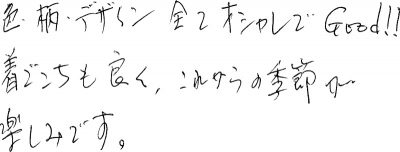 色・柄・デザイン 全てオシャレで Good!!
着ごこちも良く、これからの季節が
楽しみです。